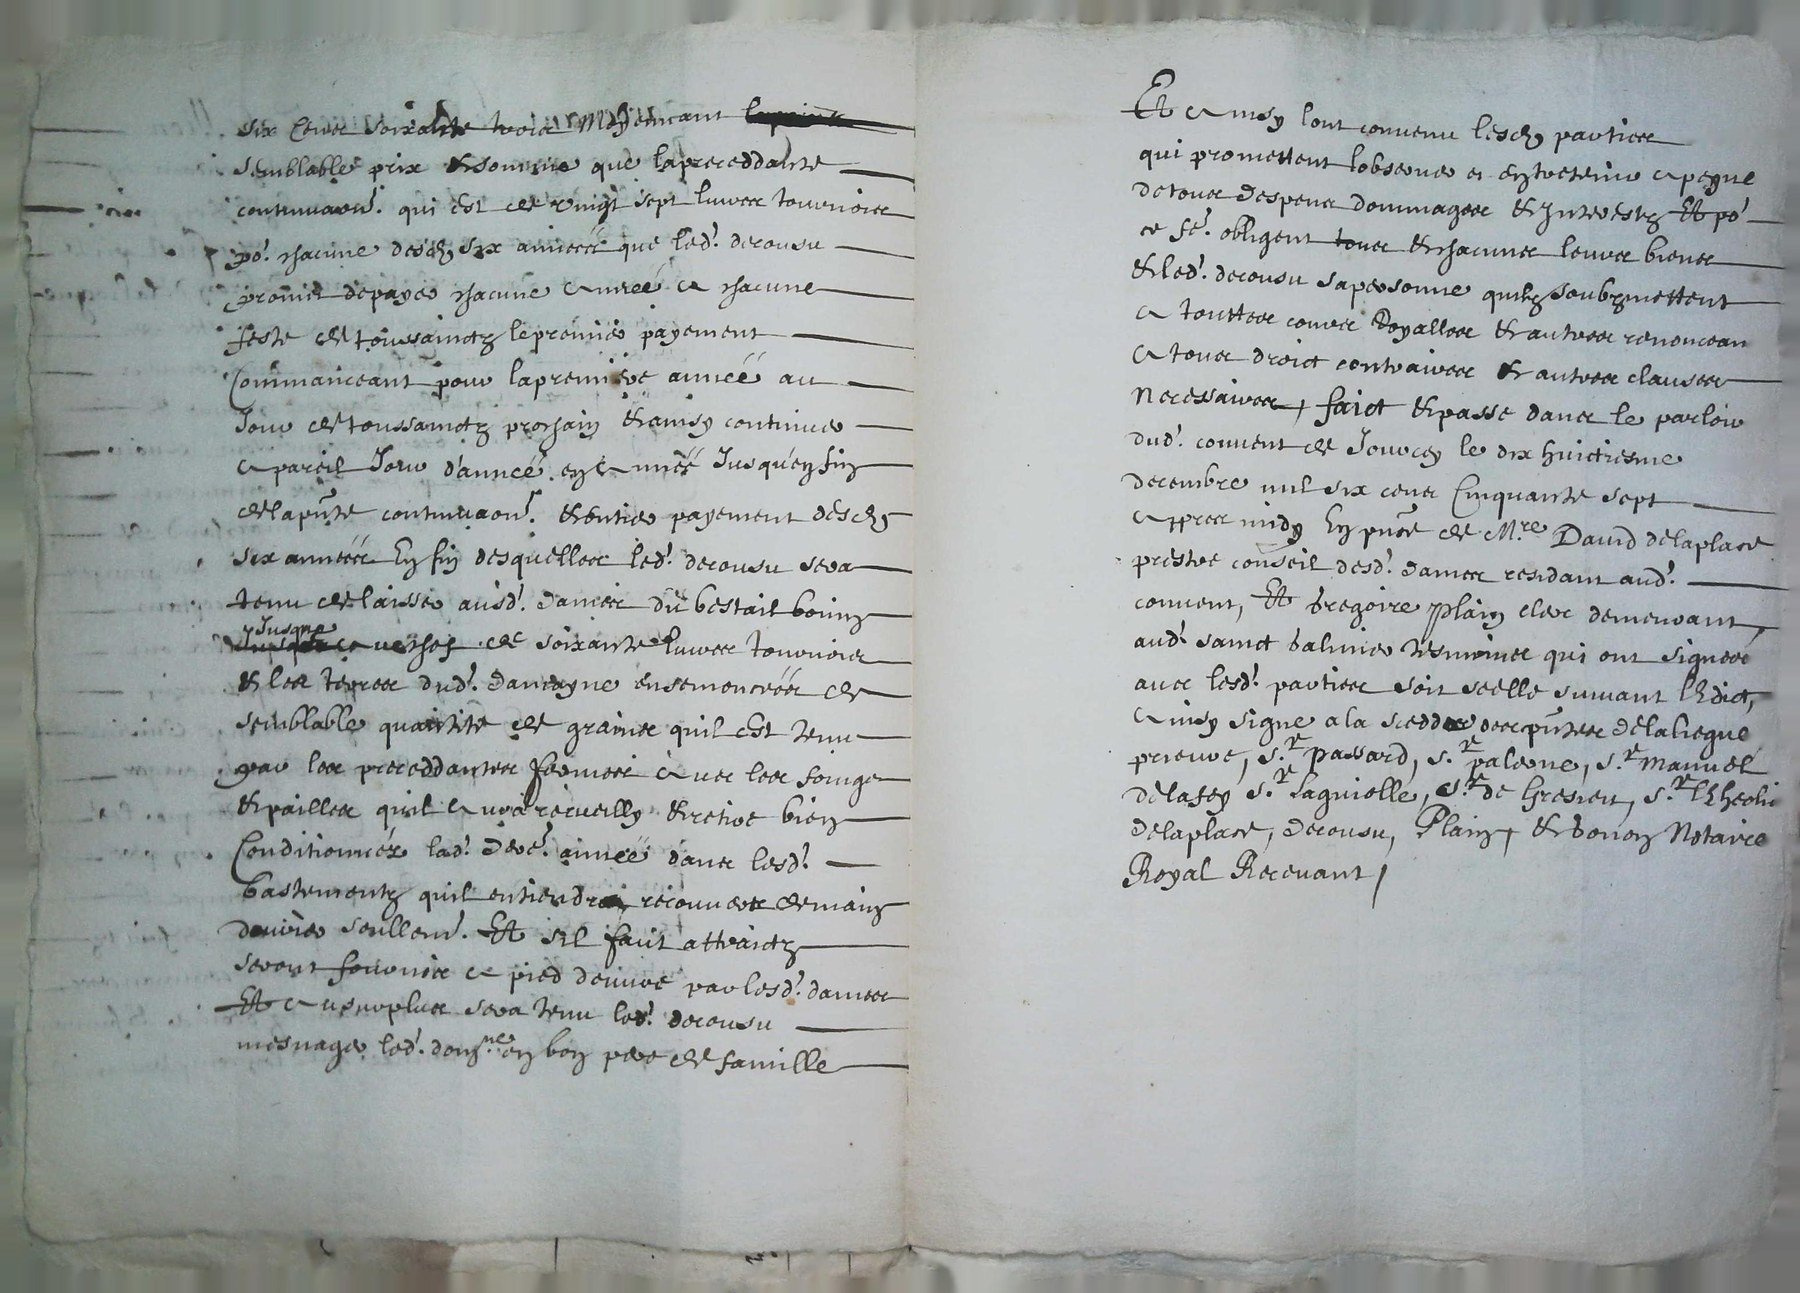 six cens soixante trois Moyennant
semblable prix & somme que la preceddante
continuaon. qui est de vingt sept livres tournois
po.r chacune desd. six années que led.t decousu
promis de payer chacune année a chacune
feste de toussainctz le premier payement
Commanceant pour la premiere année au
Jour de toussainctz prochain & ainsy continuer
a pareil Jour d'année en année Jusqu'en fin
de la pnte continuaon. & entier payement desd.
six années En fin desquelles led.t decousu sera
tenu de laisser ausd.t dames du bestail bouin
Jusque a de soixante livres tournois
& les terres dud.t ensemencéés de
semblable quantité de graines quil est tenu
par les preceddantes fermes avec les foinge
& pailles quil aura recueilly & retire bien
Conditionnés lad.t année dans lesd.t
bastimentz quil entiendra recouvers de main
deuvre seullem.t Et sil faut attraictz
seront fournis a pied deuvre par lesd.t dames
Et au surplus sera tenu led.t decousu
mesnager led.t dom.ne en bon pere de famille
Et ainsy lont convenu lesd. parties
qui promettent lobserver et entretenir a peyne
de tous despens dommages & Interestz Et po.r
ce f.e obligent tous & chacunes leurs biens
& led.t decousu sa personne quilz soubzmettent
a touttes cours Royalles & autres renonceant
a tous droict contraires & autres clauses
Necessaires, faict & passe dans le parloir
dud.t couvent de Jourcey le dix huictiesme
decembre mil six cens Cinquante sept
appres midy En pnce de M.re David delaplace
prestre conseil desd.t dames residant aud.t
couvent, Et Gregoire Plain clerc demeurant
aud.t sainct Galmier tesmoins qui ont signees
avec lesd.t parties soit scelle suivant lEdict,
ainsy signe a la scedde des pntes
prieure, S.r Passard, S.r palerne, S.r Manuel
delafay S.r S.r de S.r
delaplace, decousu, Plain, & Notaire
Royal Recevant,